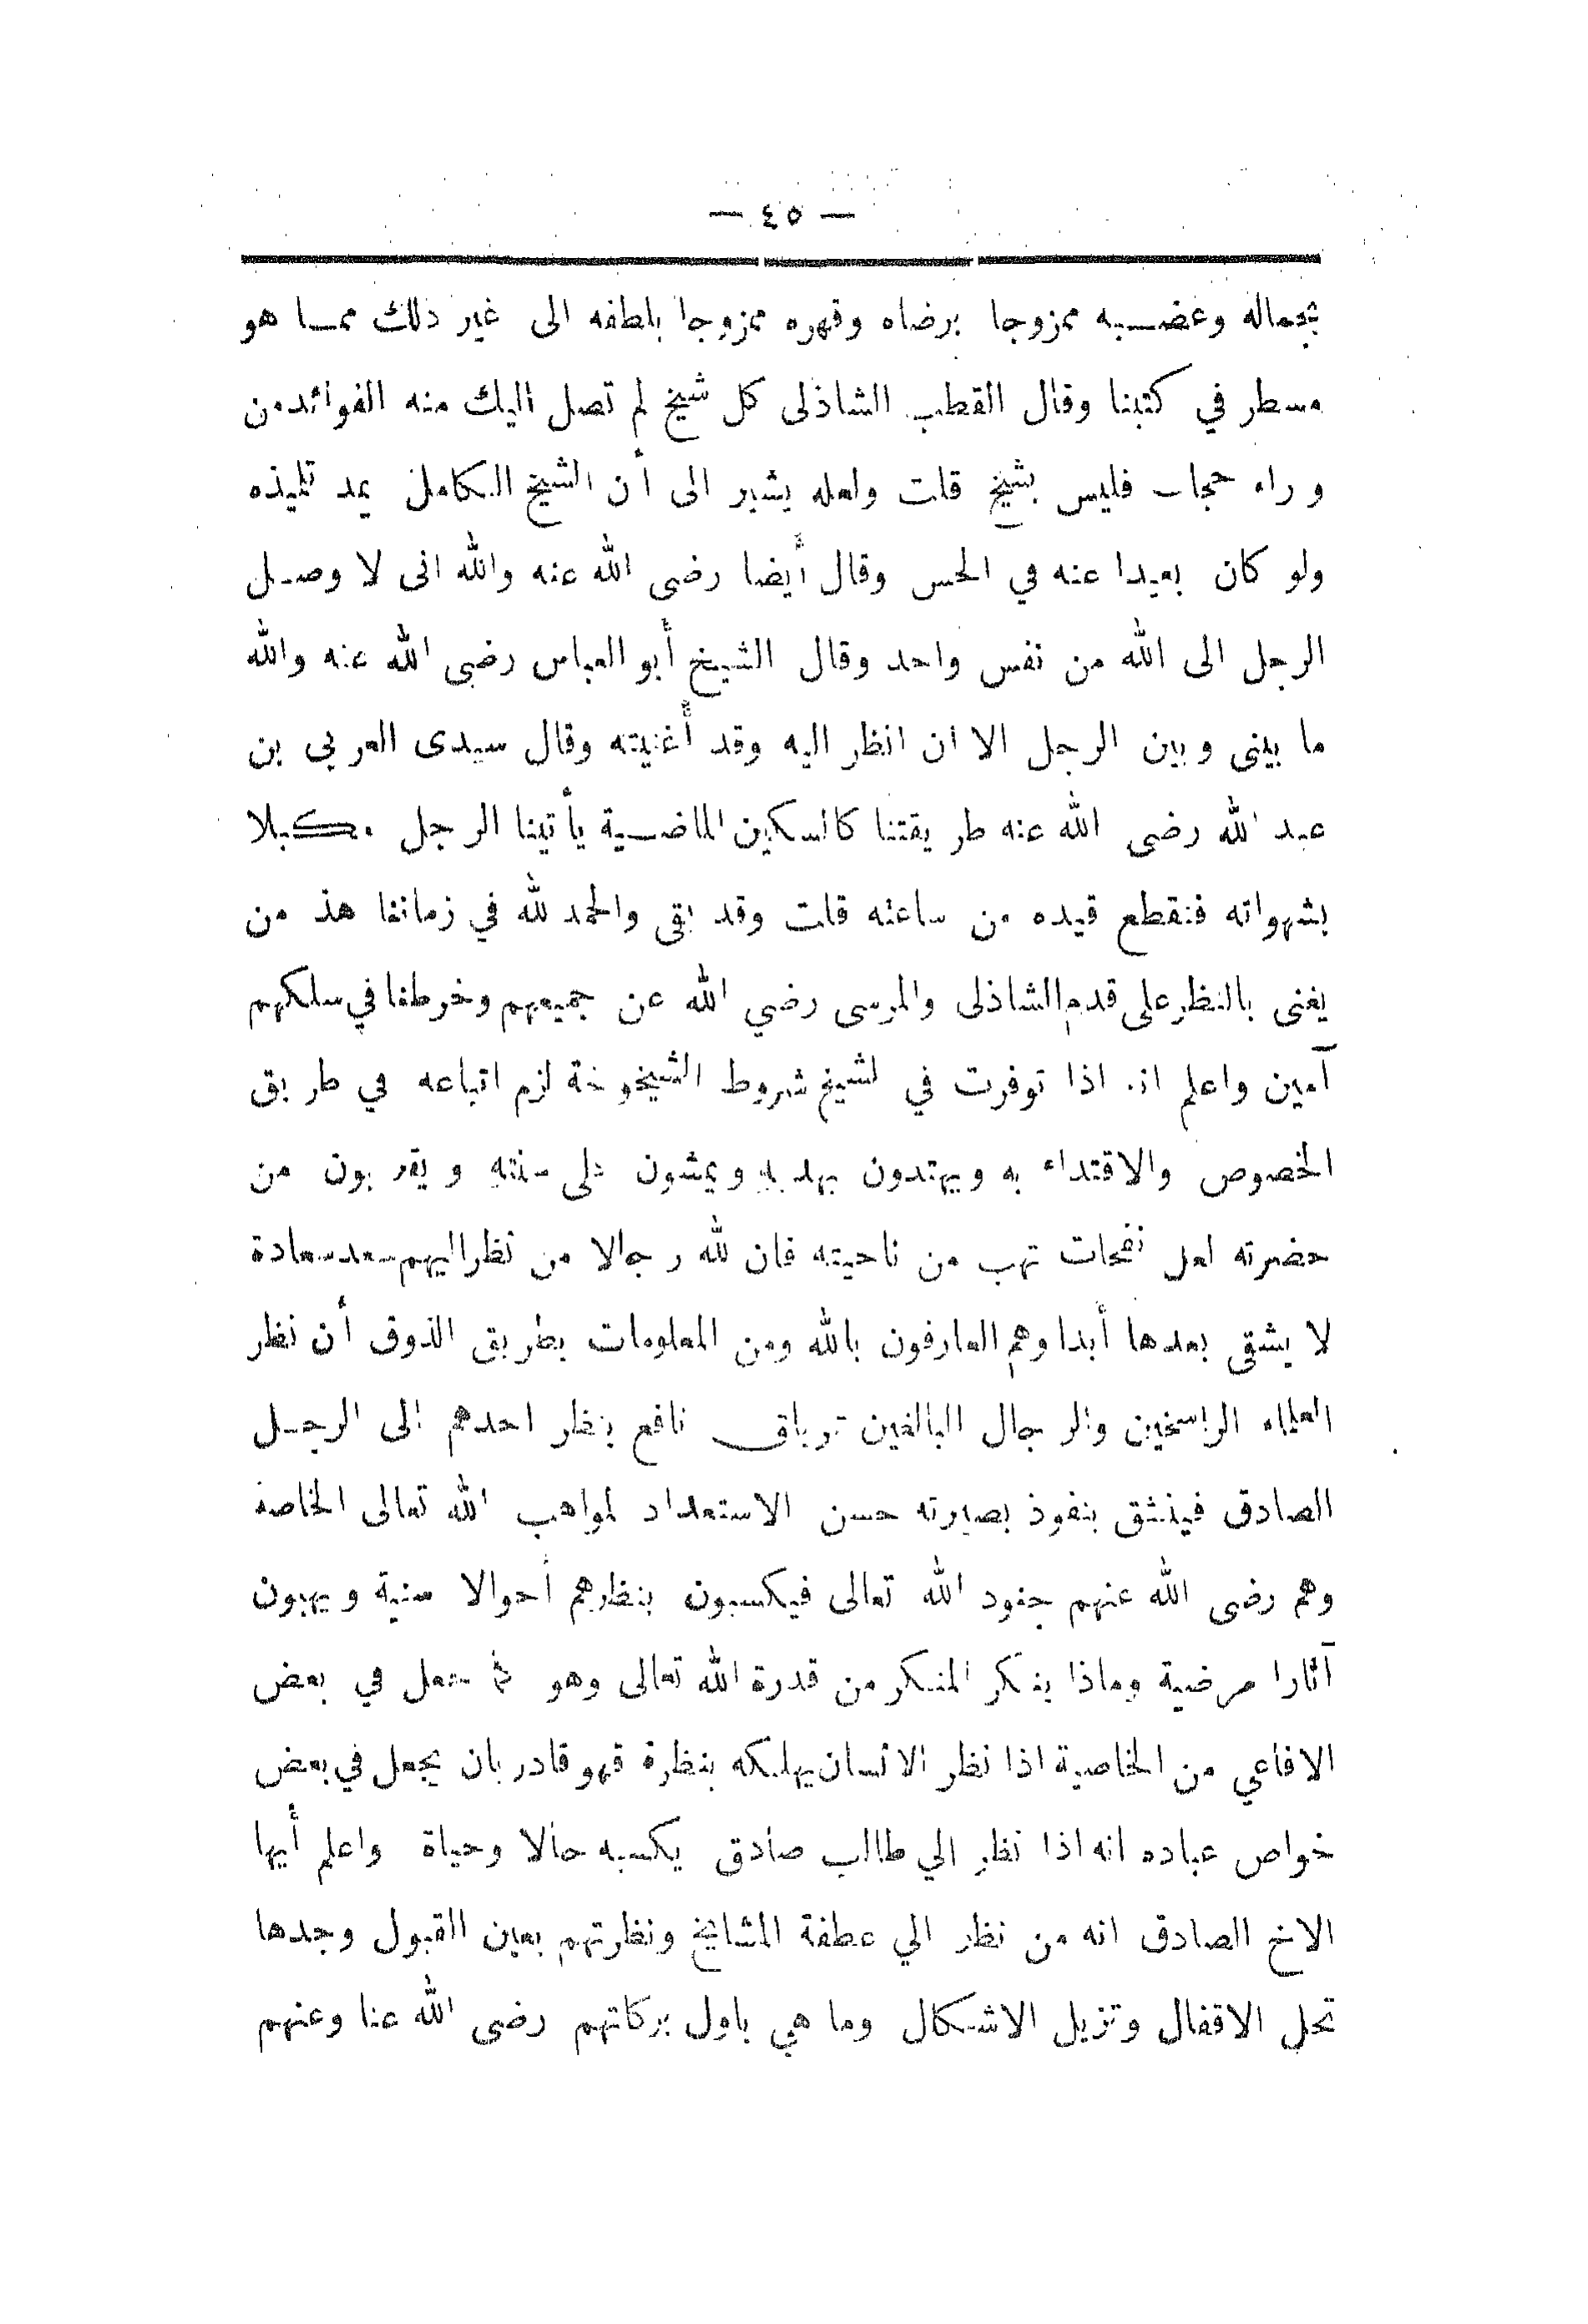 — ٤٥ —
بجماله وغضبه ممزوجا برضاه وقهره ممزوجا بلطفه الى غير ذلك مما هو
مسطر في كتبنا وقال القطب الشاذلى كل شيخ لم تصل اليك منه الفوائد من
وراء حجاب فليس بشيخ قلت ولعله يشير الى أن الشيخ الكامل يمد تلميذه
ولو كان بعيدا عنه في الحس وقال أيضا رضى الله عنه والله انى لا وصل
الرجل الى الله من نفس واحد وقال الشيخ أبو العباس رضى الله عنه والله
ما بينى وبين الرجل الا ان انظر اليه وقد أغنيته وقال سيدى العربي بن
عبد الله رضى الله عنه طريقتنا كالسكين الماضية يأتينا الرجل مكبلا
بشهواته فنقطع قيده من ساعته قلت وقد بقى والحمد لله في زماننا هذ من
يغنى بالنظر على قدم الشاذلى والمرسى رضي الله عن جميعهم وخرطنا في سلكهم
آمين واعلم انه اذا توفرت في لشيخ شروط الشيخوخة لزم اتباعه في طريق
الخصوص والاقتداء به ويهتدون بهديه ويمشون على سنته ويقربون من
حضرته لعل نفحات تهب من ناحيته فان لله رجالا من نظر اليهم سعد سعادة
لا يشقى بعدها أبدا وهم العارفون بالله ومن المعلومات بطريق الذوق أن نظر
العلماء الراسخين والرجال البالغين ترياق نافع ينظر احدهم الى الرجل
الصادق فينشق بنفوذ بصيرته حسن الاستعداد لمواهب الله تعالى الخاصة
وهم رضى الله عنهم جنود الله تعالى فيكسبون بنظرهم أحوالا سنية ويهبون
آثارا مرضية وماذا ينكر المنكر من قدرة الله تعالى وهو كما جعل في بعض
الافاعي من الخاصية اذا نظر الانسان يهلكه بنظرة فهو قادر بان يجعل في بعض
خواص عباده انه اذا نظر الي طالب صادق يكسبه حالا وحياة واعلم أيها
الاخ الصادق انه من نظر الي عطفة المشايخ ونظرتهم بعين القبول وجدها
تحل الاقفال وتزيل الاشكال وما هي باول بركاتهم رضى الله عنا وعنهم